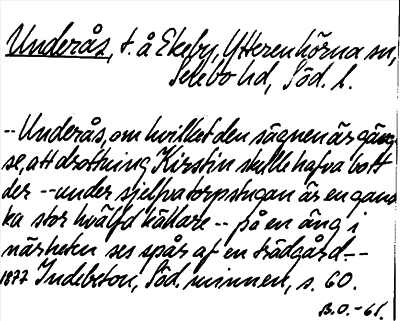 Underås, t. å Ekeby, Ytterenhörna sn,
Selebo hd, Söd. l.
-- Underås, om hvilket den sägnen är gäng-
se, att drottning Kirstin skulle hafva bott
der -- under sjelfva torpstugan är en gans-
ka stor hvälfd källare -- på en äng i
närheten ses spår af en trädgård --
1877 Indebetou, Söd. minnen, s. 60.
B.O. -65.